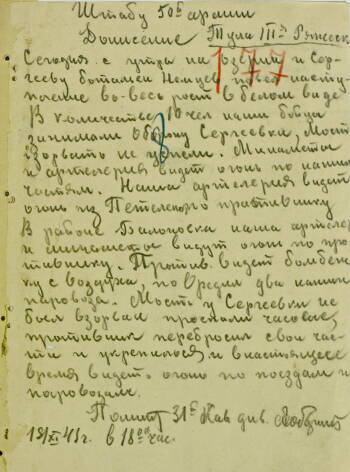 Штабу 50й армии
Донесение Тула III го Ряжеск
177
Сегодня с утра на и Сер-
геевку батальон Немцев насту-
пление во-весь рост в белом виде
В количестве чел наши бойцы
занимали Оборону Сергеевка, Мост
взорвать не успели. Минометы
и артелерия видет огонь по нашим
частям. Наша артелерия видет
огонь из Петелено противнику
В районе наша артелер
и минометы видут огонь по про
тивнику. Против. видет бомбеж
ку с воздуха, повредил два наших
паровоза. Мост у Сергеевки не
был взорван проспали часовые,
противник перебросил свои час-
ти и укрепился и внастоящее
время видет огонь по поездам и
паровозам.
31й Кав див.
в 18 00 час.